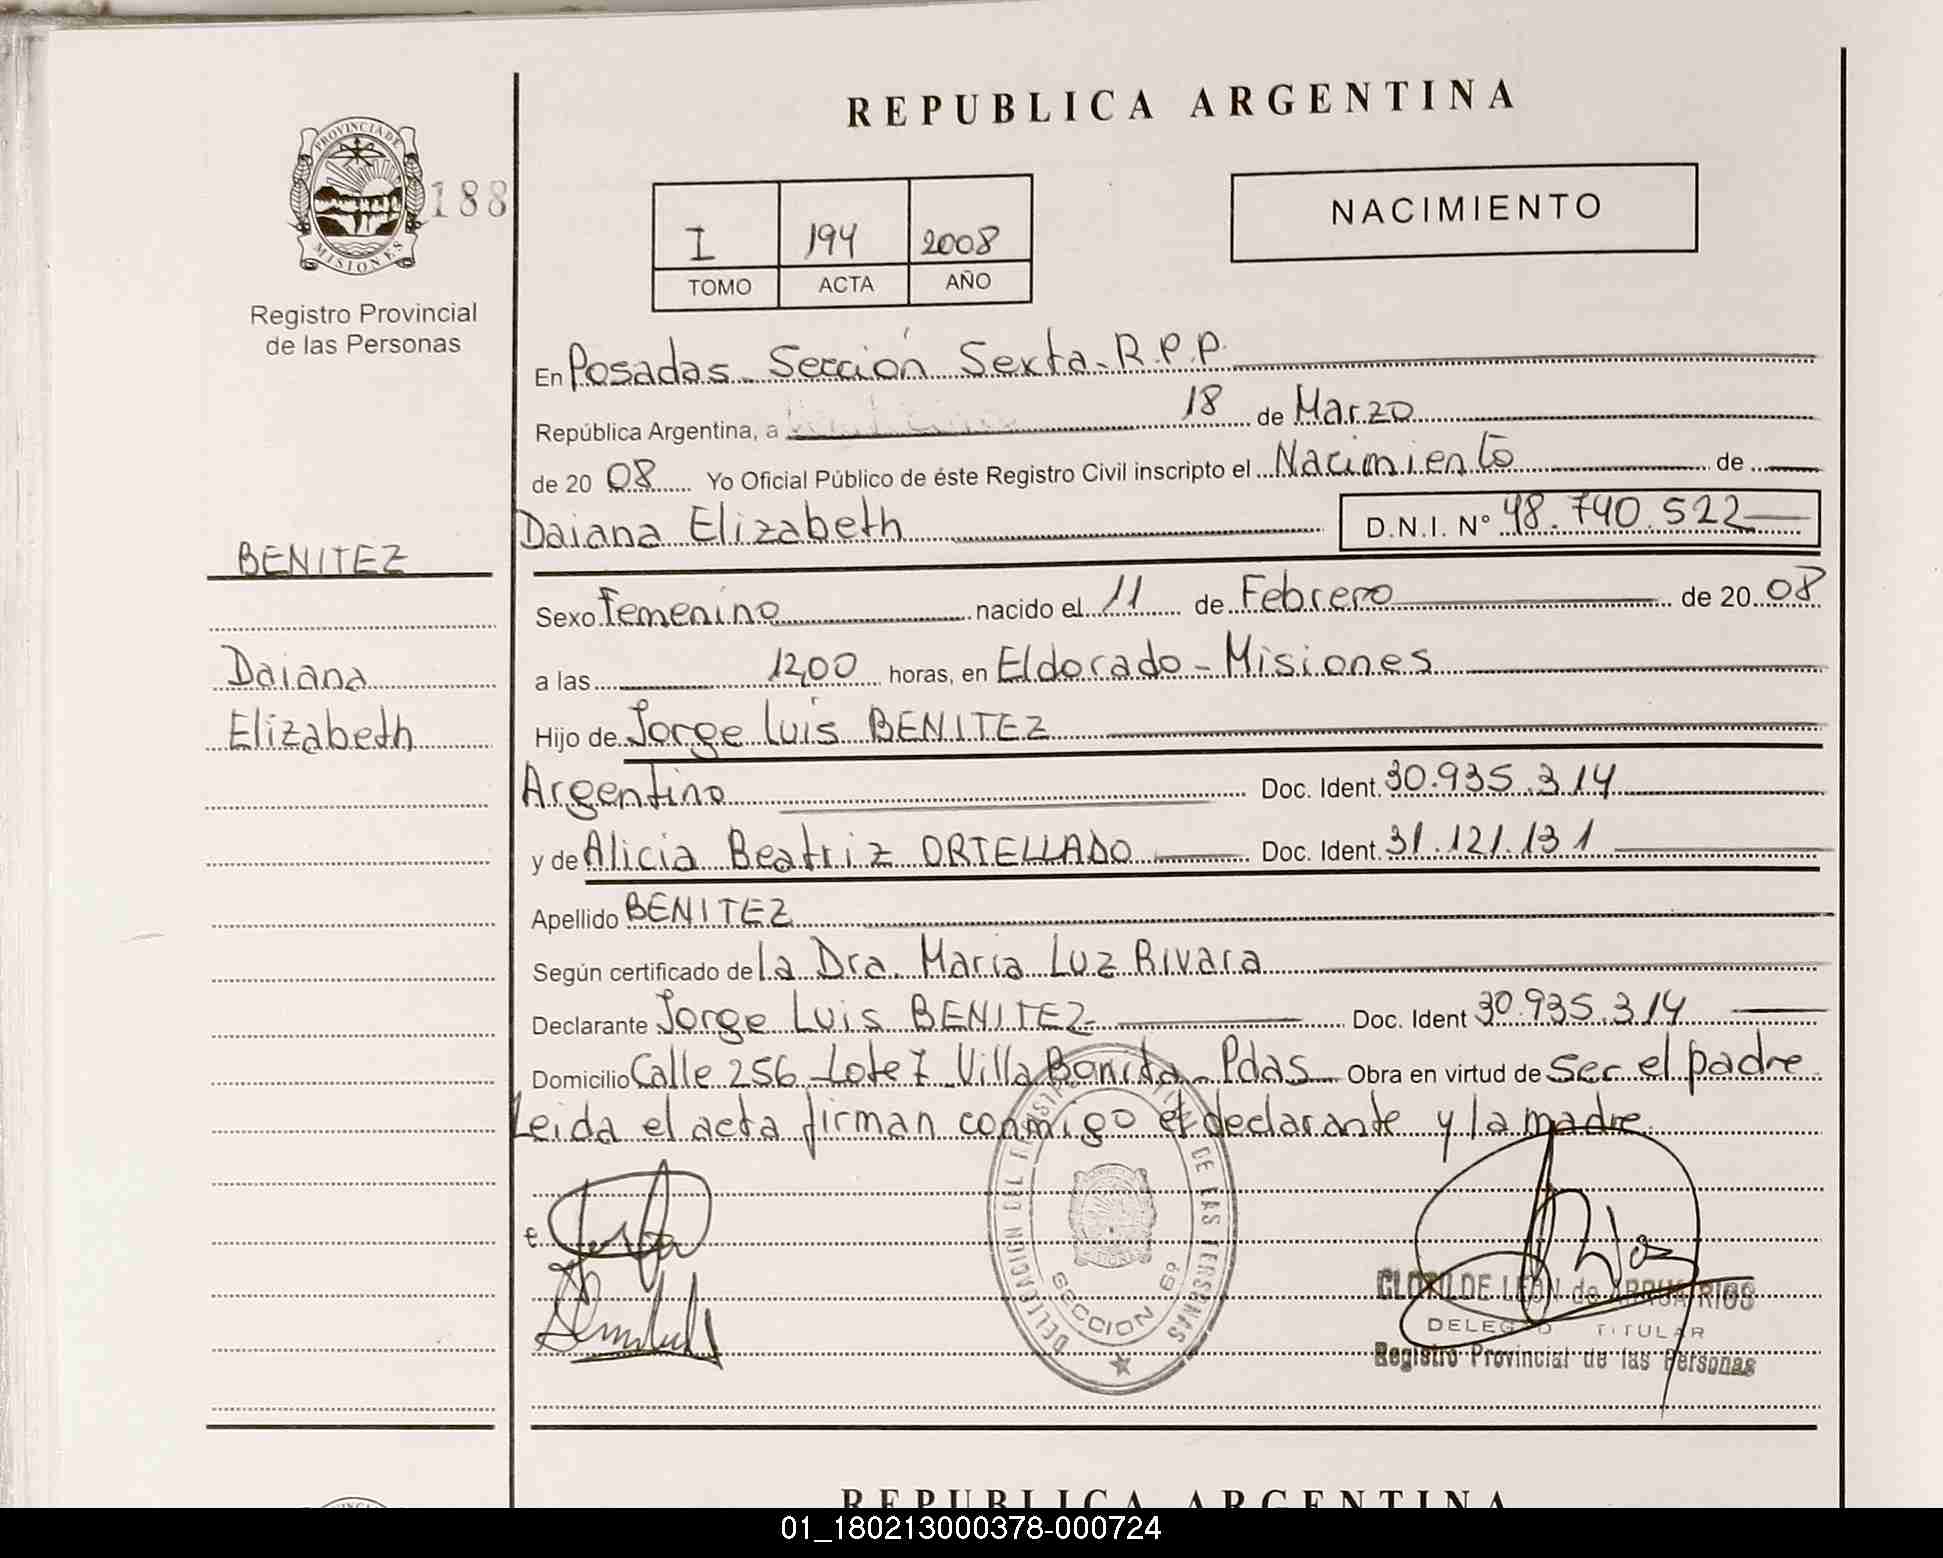 REPUBLICA ARGENTINA
PROVINCIA DE
MISIONES
188
Registro Provincial
de las Personas
I 194 2008
TOMO ACTA AÑO
NACIMIENTO
En Posadas - Sección Sexta - R.P.P.
República Argentina, a 18 de Marzo
de 20 08 Yo Oficial Público de éste Registro Civil inscripto el Nacimiento de
Daiana Elizabeth D.N.I. N° 48.740.522
BENITEZ
Daiana
Elizabeth
Sexo Femenino nacido el 11 de Febrero de 20 08
a las 12,00 horas, en Eldorado - Misiones
Hijo de Jorge Luis BENITEZ
Argentino Doc. Ident. 30.935.314
y de Alicia Beatriz ORTELLADO Doc. Ident. 31.121.131
Apellido BENITEZ
Según certificado de la Dra. Maria Luz Rivara
Declarante Jorge Luis BENITEZ Doc. Ident 30.935.314
Domicilio Calle 256 Lote 7 Villa Bonita - Pdas Obra en virtud de ser el padre
Leida el acta firman conmigo el declarante y la madre
DE LAS PERSONAS
SECCION 6ª
CLOTILDE LEON de RIOS
TITULAR
Registro Provincial de las Personas
REPUBLICA ARGENTINA
01_180213000378-000724